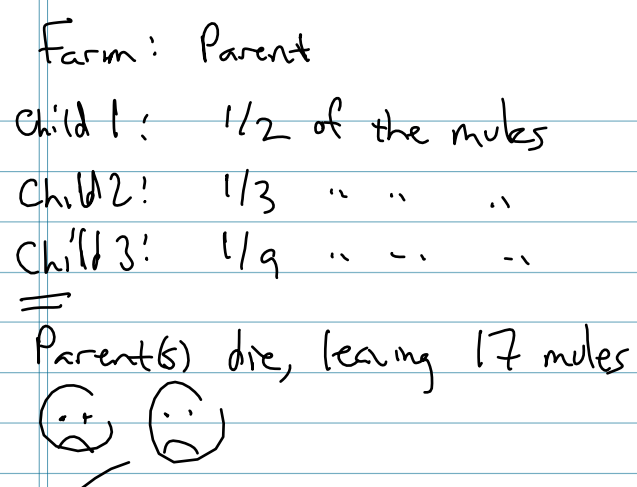 Farm: Parent
Child 1: 1/2 of the mules
Child 2: 1/3 " " "
Child 3: 1/9 " " "
Parent(s) die, leaving 17 mules